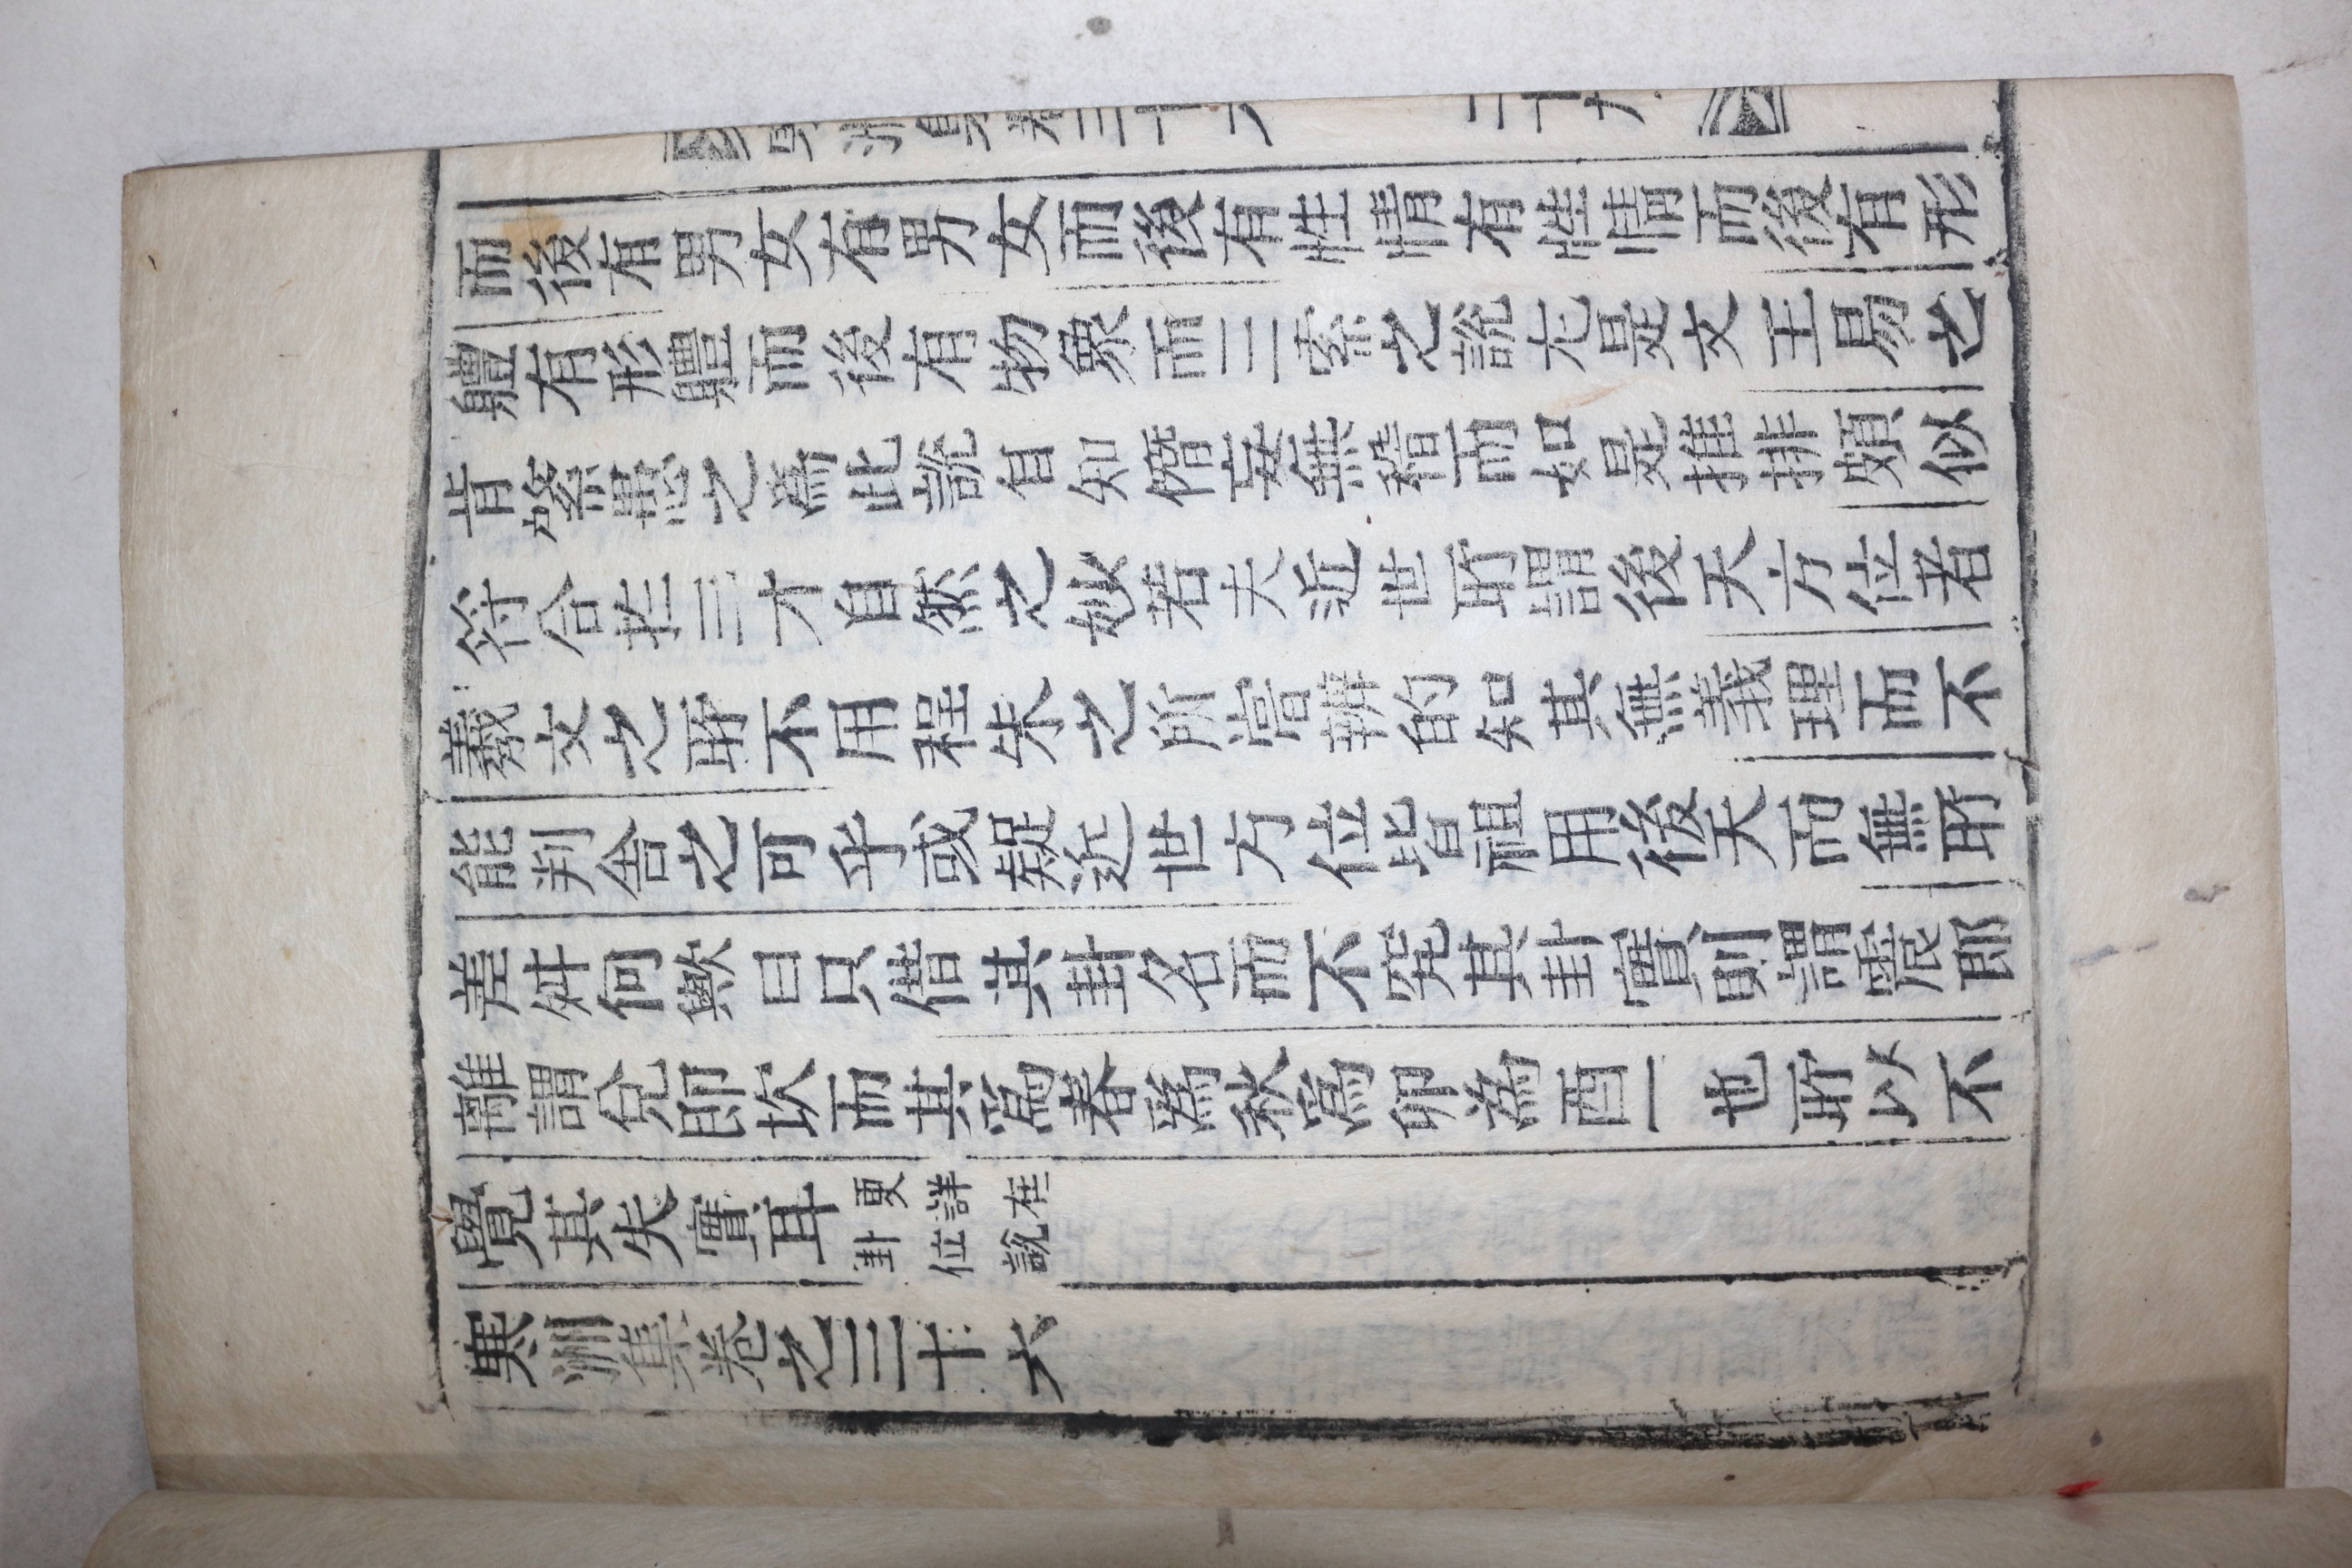 寒洲集卷三十六 二十九
而後有男女有男女而後有性情有性情而後有形
體有形體而後有物象而三索之說尤是文王易之
肯綮愚之爲此說自知僭妄無稽而如是推排頗似
符合於三才自然之妙若夫近世所謂後天方位者
羲文之所不用程朱之所嘗辨的知其無義理而不
能判舍之可乎或疑近世方位皆祖用後天而無所
差舛何歟曰只借其卦名而不究其卦實則謂震卽
離謂兌卽坎而其爲春爲秋爲卯爲酉一也所以不
覺其失實耳 更詳在卦位說
寒洲集卷之三十六